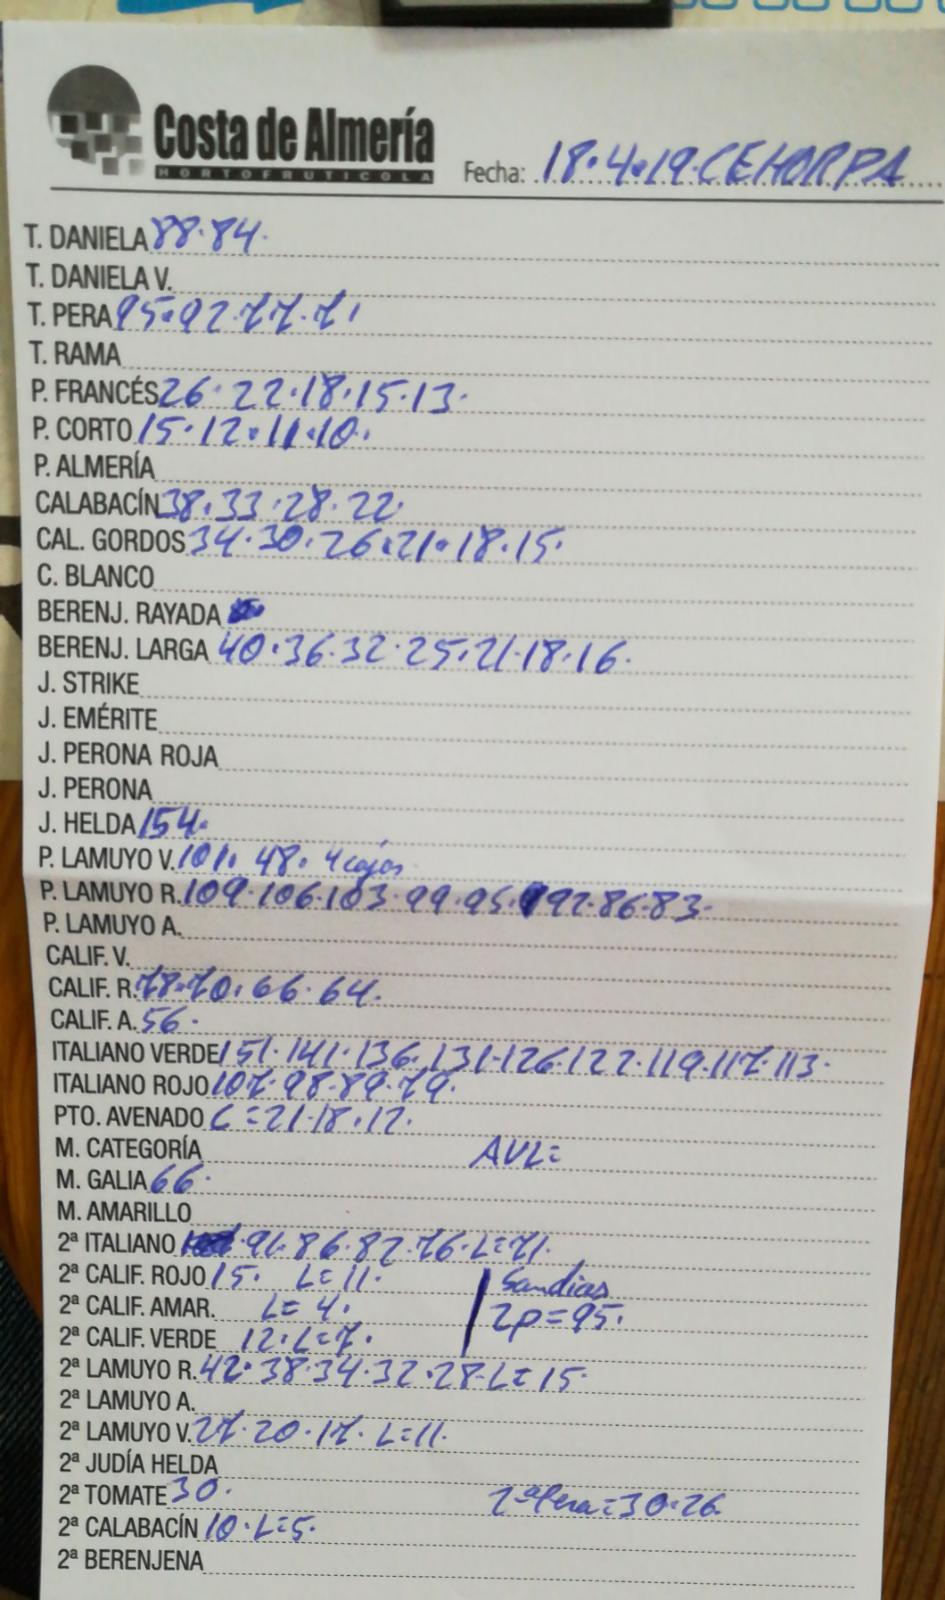 Costa de Almería
HORTOFRUTICOLA
Fecha: 18.4.19.CEHORPA
T. DANIELA 88.84.
T. DANIELA V.
T. PERA 95.92.77.71
T. RAMA
P. FRANCÉS 26.22.18.15.13.
P. CORTO 15.12.11.10.
P. ALMERÍA
CALABACÍN 38.33.28.22.
CAL. GORDOS 34.30.26.21.18.15.
C. BLANCO
BERENJ. RAYADA
BERENJ. LARGA 40.36.32.25.21.18.16.
J. STRIKE
J. EMÉRITE
J. PERONA ROJA
J. PERONA
J. HELDA 154.
P. LAMUYO V. 101. 48. 4 cajas
P. LAMUYO R. 109.106.103.99.95.92.86.83.
P. LAMUYO A.
CALIF. V.
CALIF. R. 78.70.66.64.
CALIF. A. 56.
ITALIANO VERDE 151.141.136.131.126.122.119.117.113.
ITALIANO ROJO 107.98.89.79.
PTO. AVENADO L=21.18.12.
M. CATEGORÍA AVL=
M. GALIA 66.
M. AMARILLO
2ª ITALIANO 91.86.82.76.L=71.
2ª CALIF. ROJO 15. L=11. Sandias
2ª CALIF. AMAR. L=4. 2p=95.
2ª CALIF. VERDE 12.L=7.
2ª LAMUYO R. 42.38.34.32.28.L=15.
2ª LAMUYO A.
2ª LAMUYO V. 27.20.17. L=11.
2ª JUDÍA HELDA
2ª TOMATE 30. 2ªPera=30.26.
2ª CALABACÍN 10.L=5.
2ª BERENJENA